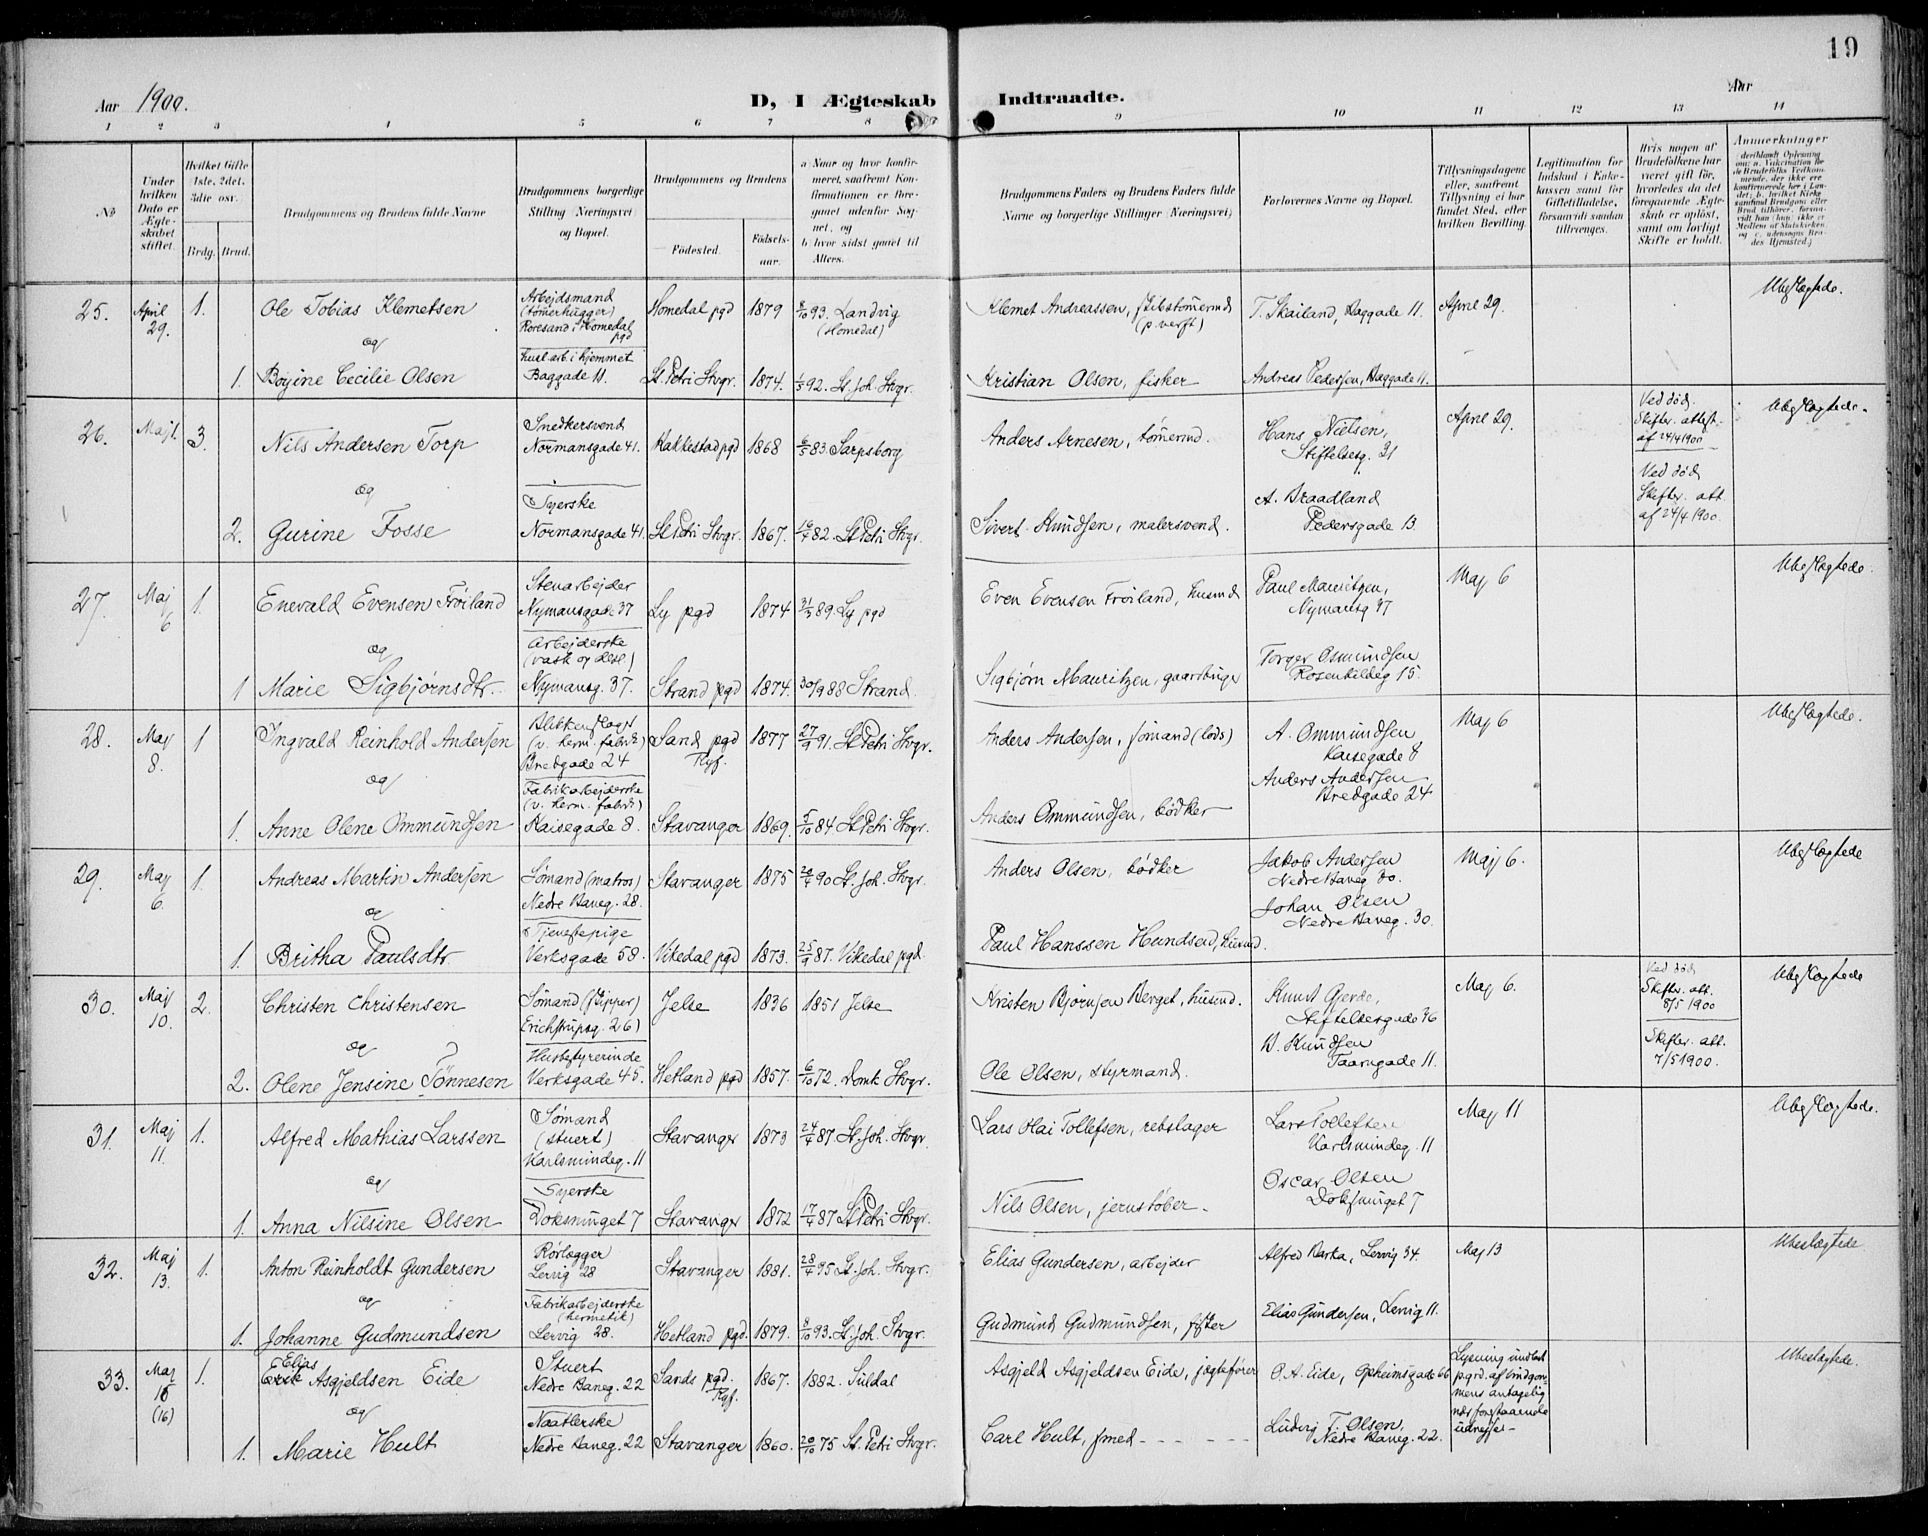 19
Aar 1900.
D, I Ægteskab Indtraadte.
Aar
1 2 3 4 5 6 7 8 9 10 11 12 13 14
No
Under hvilken Dato er Ægteskabet stiftet.
Hvilket Gifte 1ste, 2det, 3die osv.
Brdg. Brud.
Brudgommens og Brudens fulde Navne
Brudgommens borgerlige Stilling (Næringsvei) og Bopæl.
Brudgommens og Brudens
Fødested.
Fødsels-aar.
a Naar og hvor konfirmeret, saafremt Konfirmationen er foregaaet udenfor Sognet, og
b. hvor sidst gaaet til Alters.
Brudgommens Faders og Brudens Faders fulde Navne og borgerlige Stillinger (Næringsvei)
Forlovernes Navne og Bopæl.
Tillysningsdagene eller, saafremt Tillysning ei har fundet Sted, efter hvilken Bevilling.
Legitimation for Indskud i Enkekassen samt for Giftetilladelse, forsaavidt saadan tiltrænges.
Hvis nogen af Brudefolkene har været gift før, hvorledes da det foregaaende Ægteskab er opløst, samt om lovligt Skifte er holdt.
Anmærkninger
25. April 29. 1. Ole Tobias Klemetsen
Arbejdsmand (tømerhugger) Roresand i Homedal pgd
Homedal pgd 1879 8/10 93. Landvig (Homedal)
Klemet Andreassen, skibstømermd (p verft)
T. Skailand, Baggade 11. April 29. Ubeslægtede.
og
1. Bojine Cecilie Olsen
husl. arb. i hjemmet Baggade 11.
St. Petri Stvgr. 1874. 1/5 92. St. Joh. Stvgr.
Kristian Olsen, fisker
Andreas Pedersen, Baggade 11.
26. Maj 1. 3. Nils Andersen Torp
Snedkersvend Normansgade 41.
Rakkestad pgd 1868 6/5 83 Sarpsborg
Anders Arnesen, tømermd.
Hans Nielsen, Stiftelsesg. 31
April 29.
Ved død. Skifter. attest. af 24/4 1900
Ubeslægtede.
og
2. Gurine Fosse
Syerske Normansgade 41.
St. Petri Stvgr. 1867. 16/4 82. St. Petri Stvgr.
Sivert Knudsen, malersvend.
A. Braadland Pedersgade 13
Ved død Skifter. att. af 24/4 1900.
27. Maj 6 1. Enevald Evensen Frøiland
Stenarbejder Nymansgade 37
Ly pgd 1874 31/3 89. Ly pgd
Even Evensen Frøiland, husmd
Paul Mauritzen, Nymansg 37
Maj 6 Ubeslægtede.
og
1 Marie Sigbjørnsdtr.
Arbejderske (vask og desl.) Nymansg. 37.
Strand pgd 1874. 30/9 88 Strand.
Sigbjørn Mauritzen, gaardbruger
Torger Osmundsen Rosenkildeg 15.
28. Maj 8. 1 Ingvald Reinhold Andersen
Blikkenslager (v. herm. fabrik) Bredgade 24
Sand pgd Ryf. 1877 27/9 91. St. Petri Stvgr.
Anders Andersen, sømand (lods)
A. Ommundsen Kaisegade 8
Maj 6 Ubeslægtede.
og
1. Anne Olene Ommundsen
Fabrikarbejderske (v. herm. fabrik) Kaisegade 8.
Stavanger 1869. 5/10 84 St. Petri Stvgr.
Anders Ommundsen, bødker
Anders Andersen Bredgade 24
29. Maj 6. 1. Andreas Martin Andersen
Sømand (matros) Nedre Baneg. 28.
Stavanger 1875 20/4 90 St. Joh. Stvgr.
Anders Olsen, bødker
Jakob Andersen Nedre Baneg 30.
Maj 6. Ubeslægtede
og
1. Britha Paulsdtr
Tjenestepige Verksgade 58.
Vikedal pgd 1873. 25/9 87. Vikedal pgd.
Paul Hanssen Hundseid, husmd.
Johan Olsen Nedre Baneg. 30.
30. Maj 10. 2. Christen Christensen
Sømand (skipper) Erichstrupsg. 26)
Jelse 1836 1851 Jelse
Kristen Bjørnsen Berget, husmd.
Knut Gjerde, Stiftelsesgade 36
Maj 6.
Ved død Skifter. att. 8/5 1900
Ubeslægtede
og
2. Olene Jensine Tønnesen
Husbestyrerinde Verksgade 45.
Hetland pgd 1857. 6/10 72. Domk Stvgr.
Ole Olsen, styrmand.
B. Knudsen Taarngade 11.
Skifter. att. 7/5 1900.
31. Maj 11. 1. Alfred Mathias Larssen
Sømand (stuert) Karlsmindeg. 11
Stavanger 1873 24/4 87 St. Joh. Stvgr.
Lars Olai Tollefsen, rebslager
Lars Tollefsen Karlsmindeg. 11
Maj 11 Ubeslægtede.
og
1. Anna Nilsine Olsen
Syerske Doksmuget 7
Stavanger 1872 17/4 87 St. Petri Stvgr.
Nils Olsen, jernstøber.
Oscar Olsen Doksmuget 7
32. Maj 13. 1. Anton Reinholdt Gundersen
Rørlægger Lervig 28
Stavanger 1881. 28/4 95 St. Joh. Stvgr.
Elias Gundersen, arbejder
Alfred Barka, Lervig 34.
Maj 13 Ubeslægtede.
og
1. Johanne Gudmundsen
Fabrikarbejderske (hermetik) Lervig 28.
Hetland pgd. 1879. 8/10 93. St. Joh. Stvgr.
Gudmund Gudmundsen, fisker
Elias Gundersen, Lervig 11.
33. Maj 15 (16) 1. Elias Asgjeldsen Eide
Stuert Nedre Baneg. 22
Sands pgd. Ryf. 1867. 1882. Suldal
Asgjeld Asgjeldsen Eide, jægtefører
O. A. Eide, Opheimsgade 66
Lysning undladt p.grd. af brudgommens antagelig nær forestaaende udrejse.
Ubeslægtede.
og
1. Marie Hult
Naatlerske Nedre Baneg. 22
Stavanger 1860. 20/10 75 St. Petri Stvgr.
Carl Hult, smed
Ludvig T. Olsen, Nedre Baneg. 22.